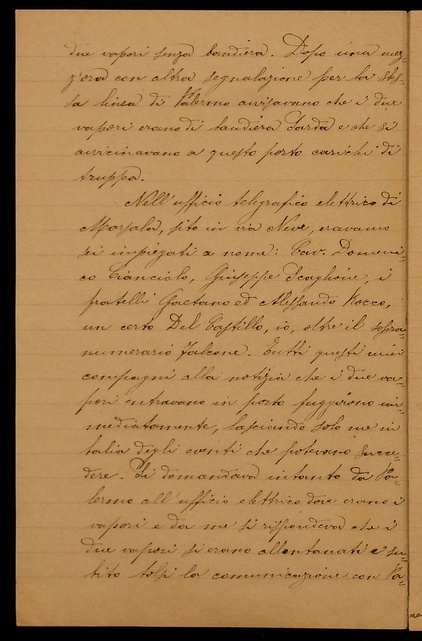 due vapori senza bandiera. Dopo una mez-
z'ora con altra segnalazione per la stes-
sa linea di Palermo avvisavano che i due
vapori erano di bandiera Sarda e che si
avvicinavano a questo porto carichi di
truppa.
Nell'ufficio telegrafico elettrico di
Marsala, sito in via Neve, eravamo
sei impiegati a nome: Cav. Domeni-
co Cianciolo, Giuseppe Scaglione, i
fratelli Gaetano ed Alessandro Rocco,
un certo Del Castillo, io, oltre il sopra
numerario Falcone. Tutti questi miei
compagni alla notizia che i due va-
pori entravano in porto fuggirono im-
mediatamente, lasciando solo me in
balia degli eventi che potevano succe-
dere. Si domandava intanto da Pa-
lermo all'ufficio elettrico dove erano i
vapori e da me si rispondeva che i
due vapori si erano allontanati e su-
bito tolsi la comunicazione con Pa-